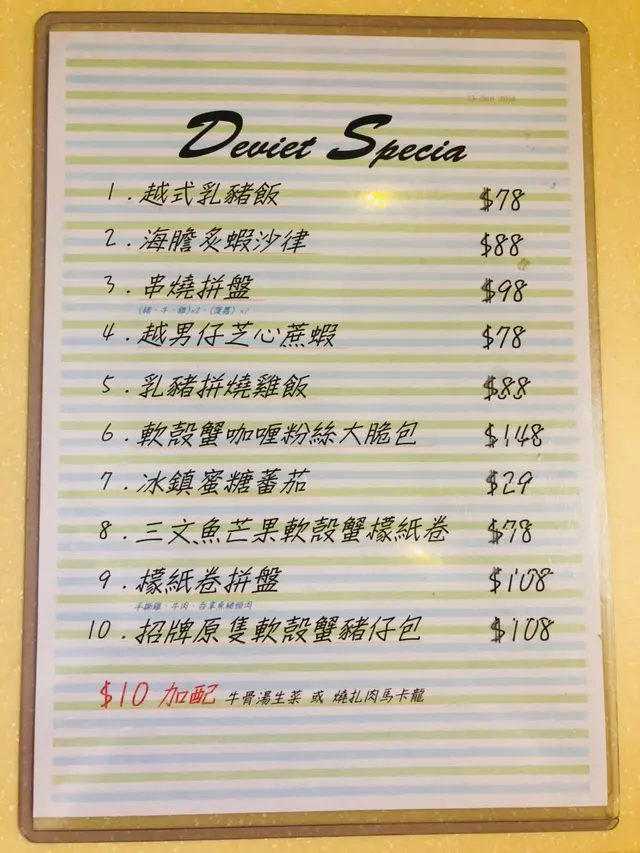 Deviet Specia
1. 越式乳豬飯 $78
2. 海膽炙蝦沙律 $88
3. 串燒拼盤 $98
4. 越男仔芝心蔗蝦 $78
5. 乳豬拼燒雞飯 $88
6. 軟殼蟹咖喱粉絲大脆包 $148
7. 冰鎮蜜糖蕃茄 $29
8. 三文魚芒果軟殼蟹檬紙卷 $78
9. 檬紙卷拼盤 $108
10. 招牌原隻軟殼蟹豬仔包 $108
$10 加配 牛骨湯生菜 或 燒扎肉馬卡龍